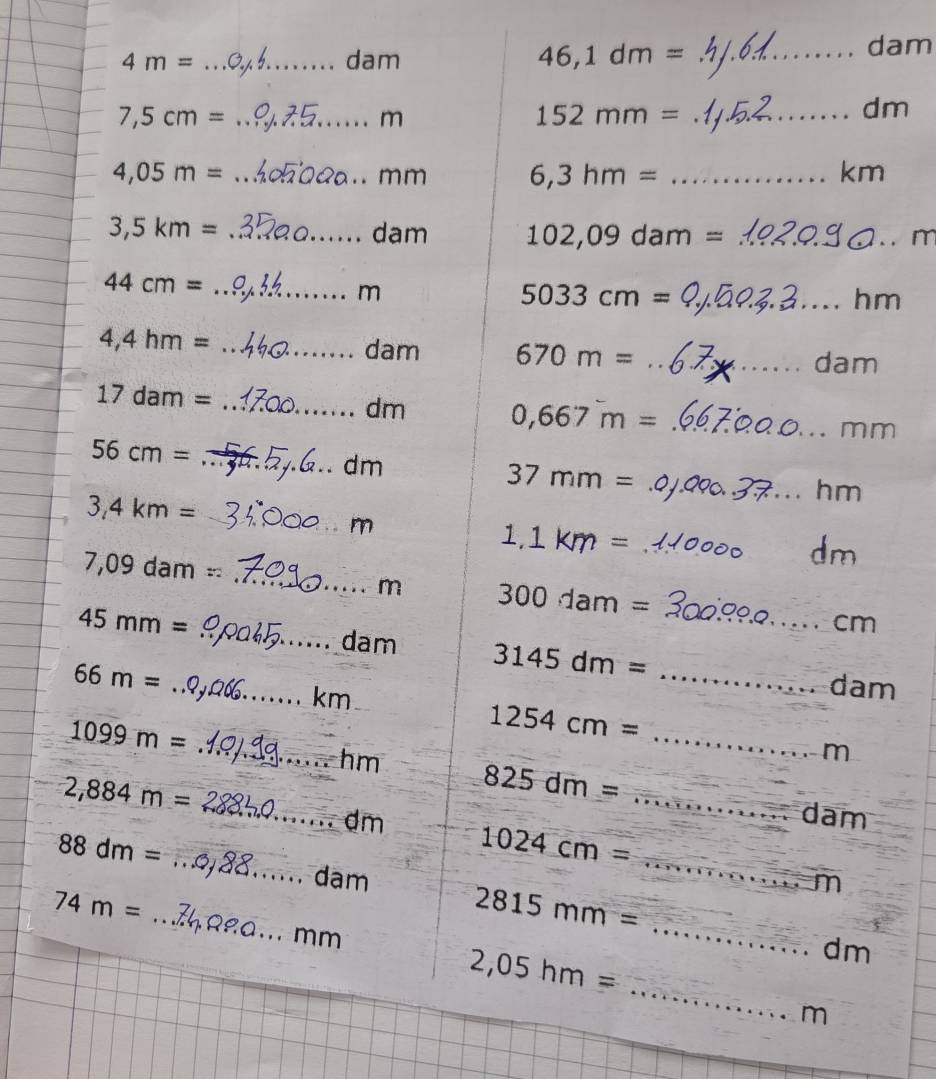 4 m = ...0,4........ dam
7,5 cm = ..0,75...... m
4,05 m = ..405000.. mm
3,5 km = .3500...... dam
44 cm = ..0,44........ m
4,4 hm = ..440........ dam
17 dam = ..1700....... dm
56 cm = ...56.5,6.. dm
3,4 km = 34000.. m
7,09 dam = .7090..... m
45 mm = 0,0045...... dam
66 m = ..0,066....... km
1099 m = .10,99..... hm
2,884 m = 28840....... dm
88 dm = ..0,88...... dam
74 m = ...74000... mm
46,1 dm = .4,61......... dam
152 mm = .1,52........ dm
6,3 hm = ............... km
102,09 dam = .102090.. m
5033 cm = 0,5033.... hm
670 m = ..67...... dam
0,667 m = .667000... mm
37 mm = .0,00037... hm
1,1 km = .110000 dm
300 dam = 300000..... cm
3145 dm = ............... dam
1254 cm = ............... m
825 dm = ............... dam
1024 cm = ............... m
2815 mm = ............... dm
2,05 hm = ............... m